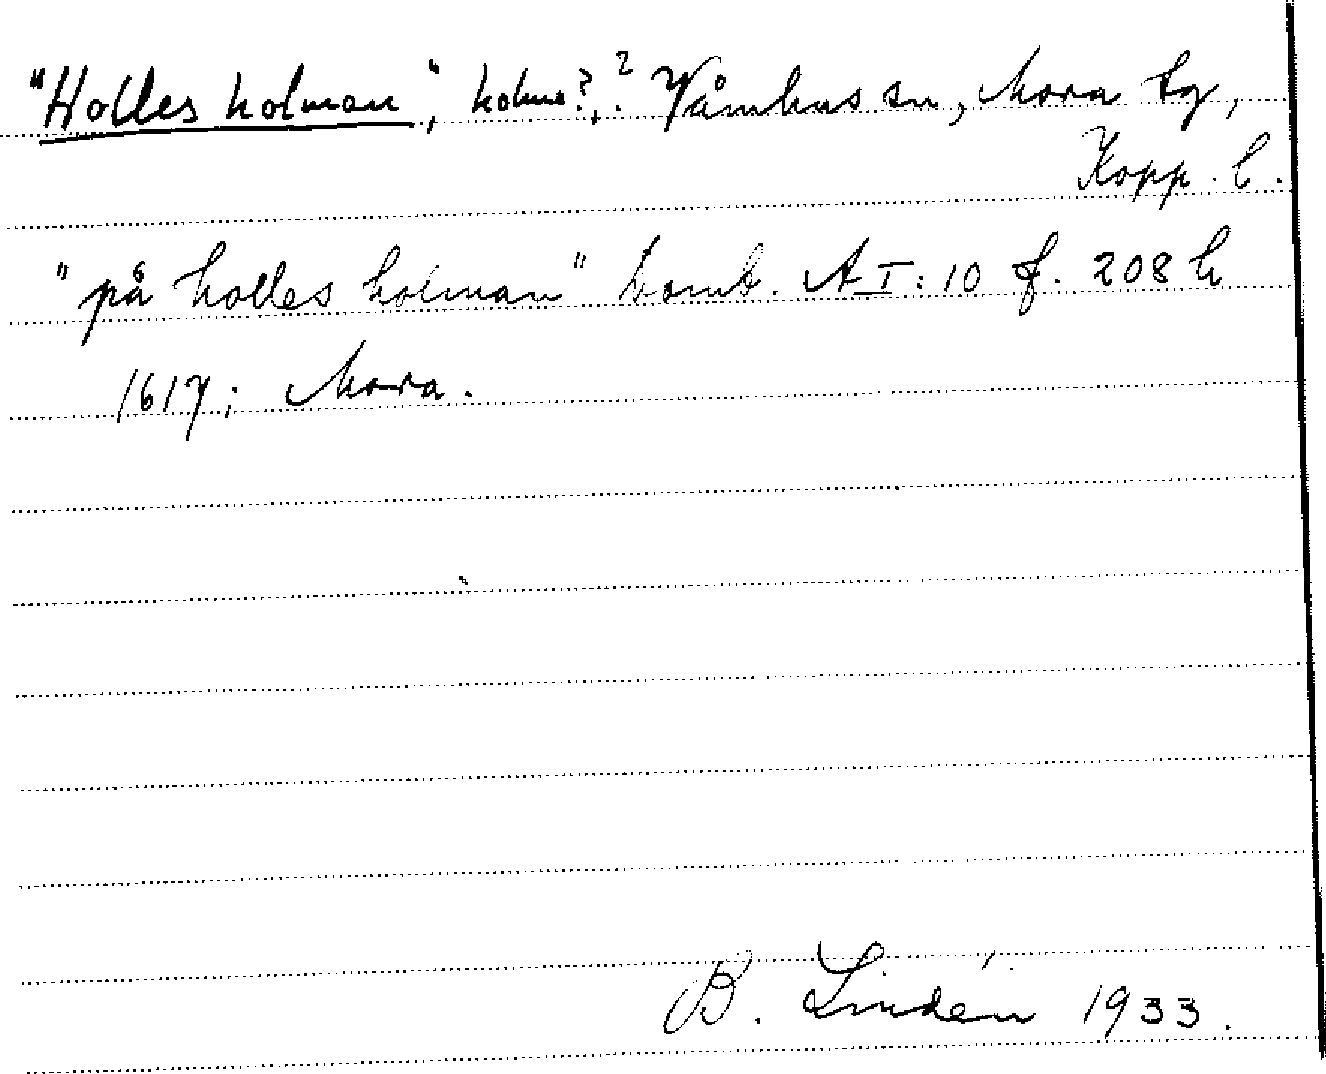 "Holles holman", holme?, ? Våmhus sn, Mora tg,
Kopp. l.
"på holles holman" Lomb. A I: 10 f. 208 h
1617; Mora.
B. Lindén 1933.